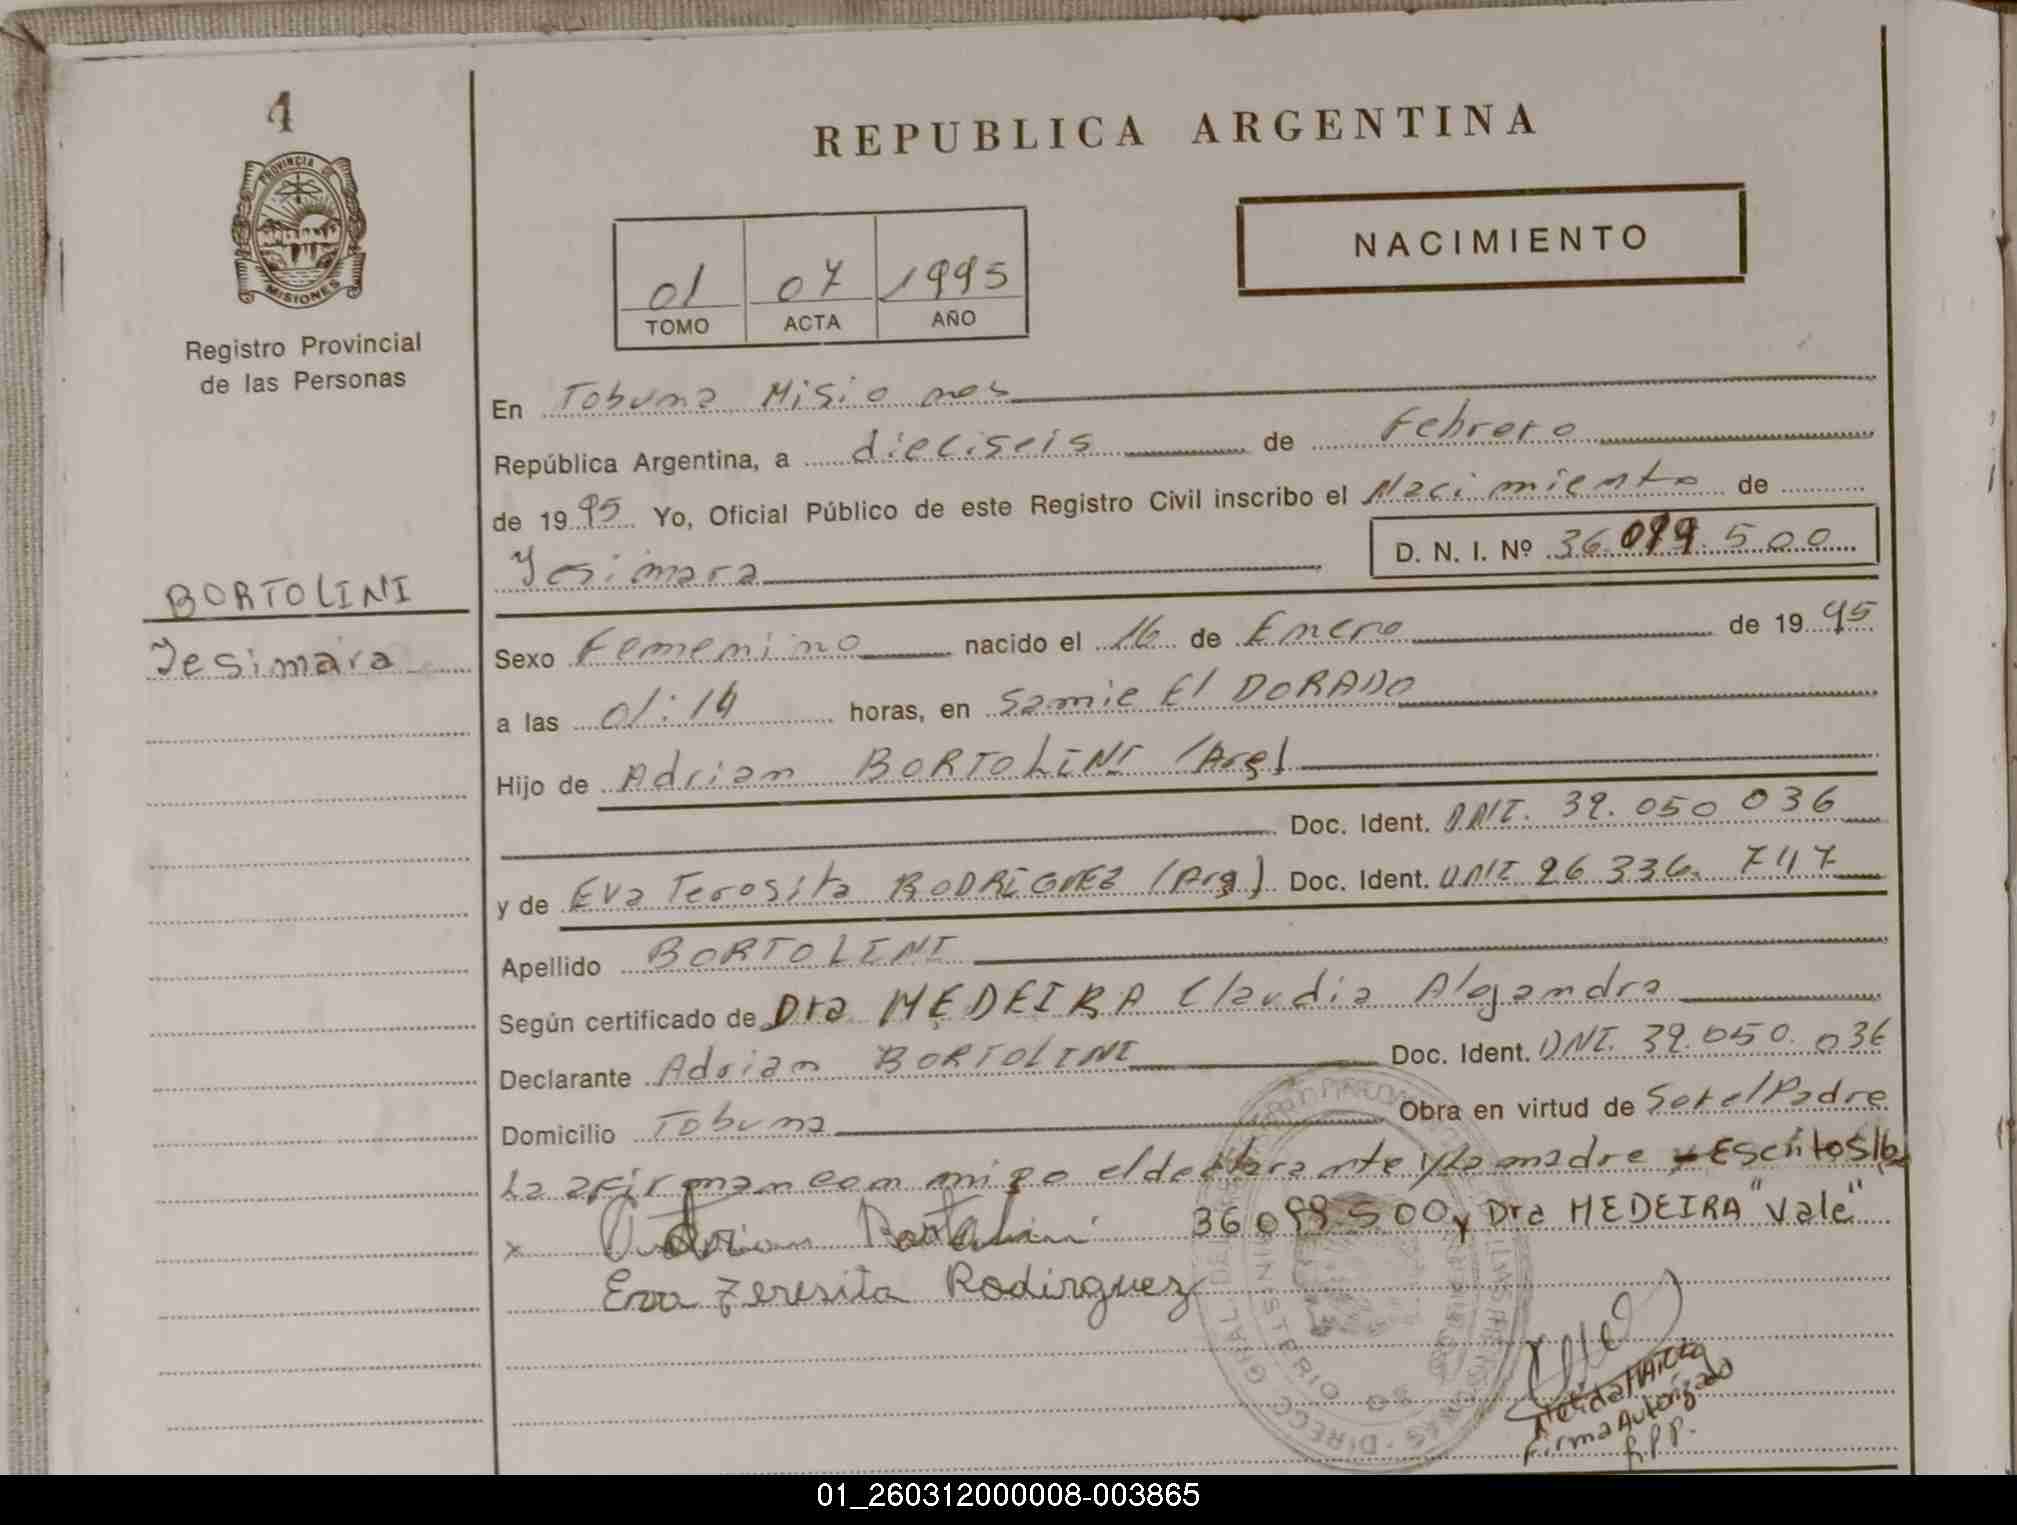 4
PROVINCIA DE
MISIONES
Registro Provincial
de las Personas
BORTOLINI
Yesimara
REPUBLICA ARGENTINA
NACIMIENTO
01 07 1995
TOMO ACTA AÑO
En Tobuna Misiones
República Argentina, a dieciseis de Febrero
de 1995 Yo, Oficial Público de este Registro Civil inscribo el Nacimiento de
Yesimara D. N. I. Nº 36.099.500
Sexo Femenino nacido el 16 de Enero de 1995
a las 01:14 horas, en Samic El DORADO
Hijo de Adrian BORTOLINI (Arg)
Doc. Ident. DNI. 32.050 036
y de Eva Teresita RODRIGUEZ (Arg) Doc. Ident. DNI 26 336. 747
Apellido BORTOLINI
Según certificado de Dra MEDEIRA Claudia Alejandra
Declarante Adrian BORTOLINI Doc. Ident. DNI. 32.050.036
Domicilio Tobuna Obra en virtud de Ser el Padre
La afirman conmigo el declarante y la madre Escritos/b
36099.500 y Dra MEDEIRA "Vale"
x Adrian Bortolini
Eva Teresita Rodirguez
Firma Autorizado
R.P.P.
01_260312000008-003865